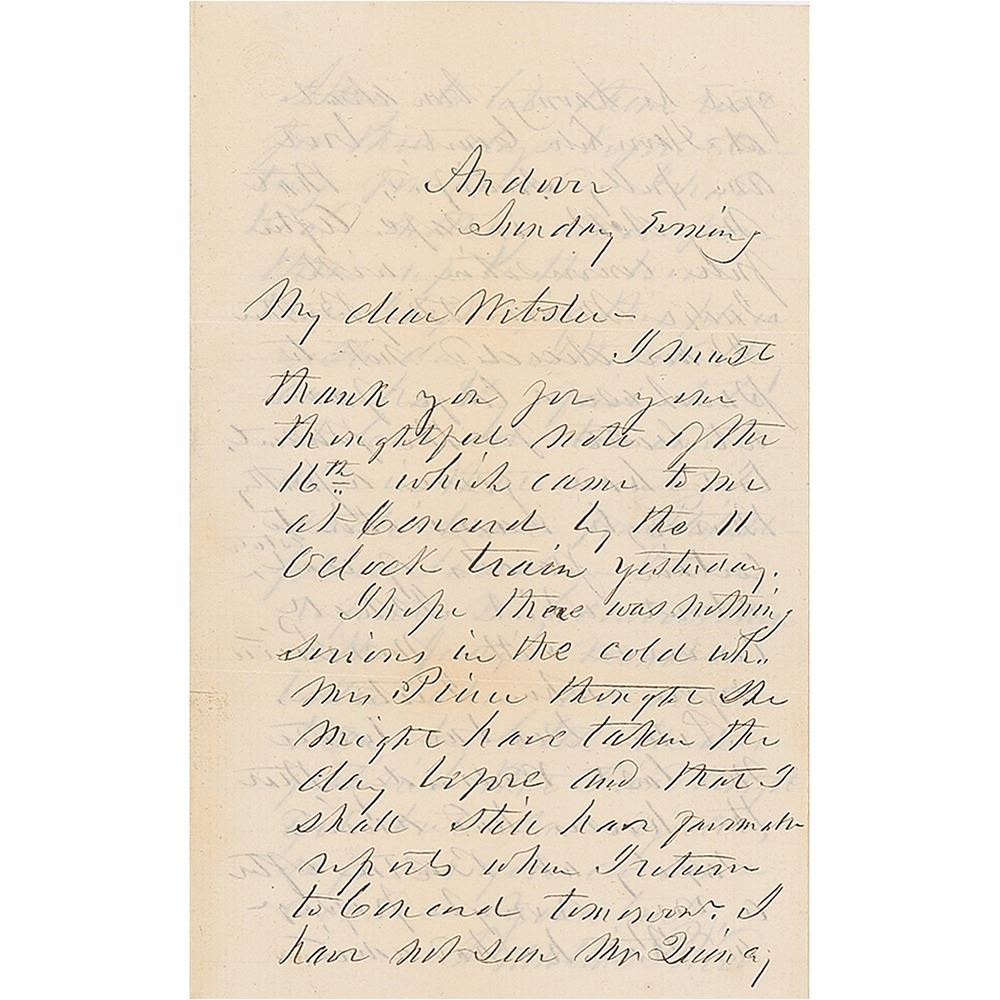 Andover
Sunday Evening
My dear Webster—
I must
thank you for your
thoughtful note of the
16th which came to me
at Concord by the 11
Oclock train yesterday.
I hope there was nothing
serious in the cold wh..
Mrs Pierce thought she
might have taken the
day before and that I
shall still have favorable
reports when I return
to Concord tomorrow. I
have not seen Mr Quincy